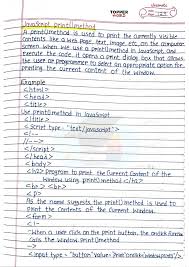 TOPPER WORLD
JavaScript print() method
A print() method is used to print the currently visible
contents like a Web page, text, image, etc, on the computer
screen. When we use a print() method in JavaScript and
execute the code, it opens a print dialog box that allows
the user or programmer to select an appropriate option for
printing the current content of the window.
Example
<html>
<head>
<title>
Use print() method in JavaScript
</title>
<script type = "text/javascript">
<!--
//-->
</script>
</head>
<body>
<h2> Program to print the Current Content of the
Window using print() method </h2>
<br> <br>
<p>
As the name suggests, the print() method is used to
print the Contents of the Current Window.
<form>
<!--
When a user click on the print button, the onclick function
Calls the window print() method
-->
<input type = "button" Value = "Print" onclick=